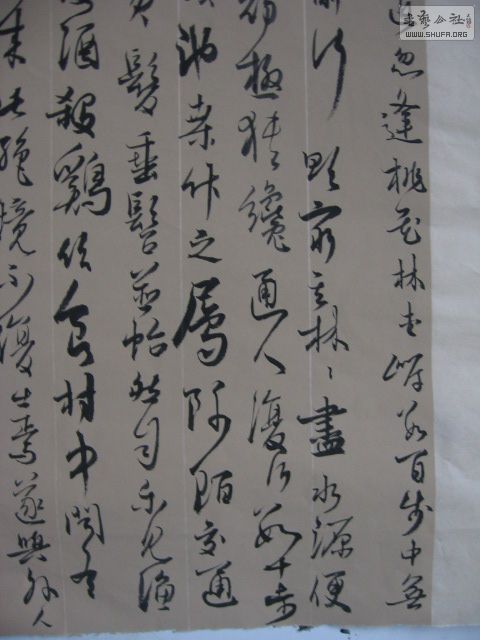 忽逢桃花林夹岸数百步中无
前行欲穷其林林尽水源便
初极狭才通人复行数十步
池桑竹之属阡陌交通
发垂髫并怡然自乐见渔
酒杀鸡作食村中闻有
来此绝境不复出焉遂与外人
书艺公社
WWW.SHUFA.ORG